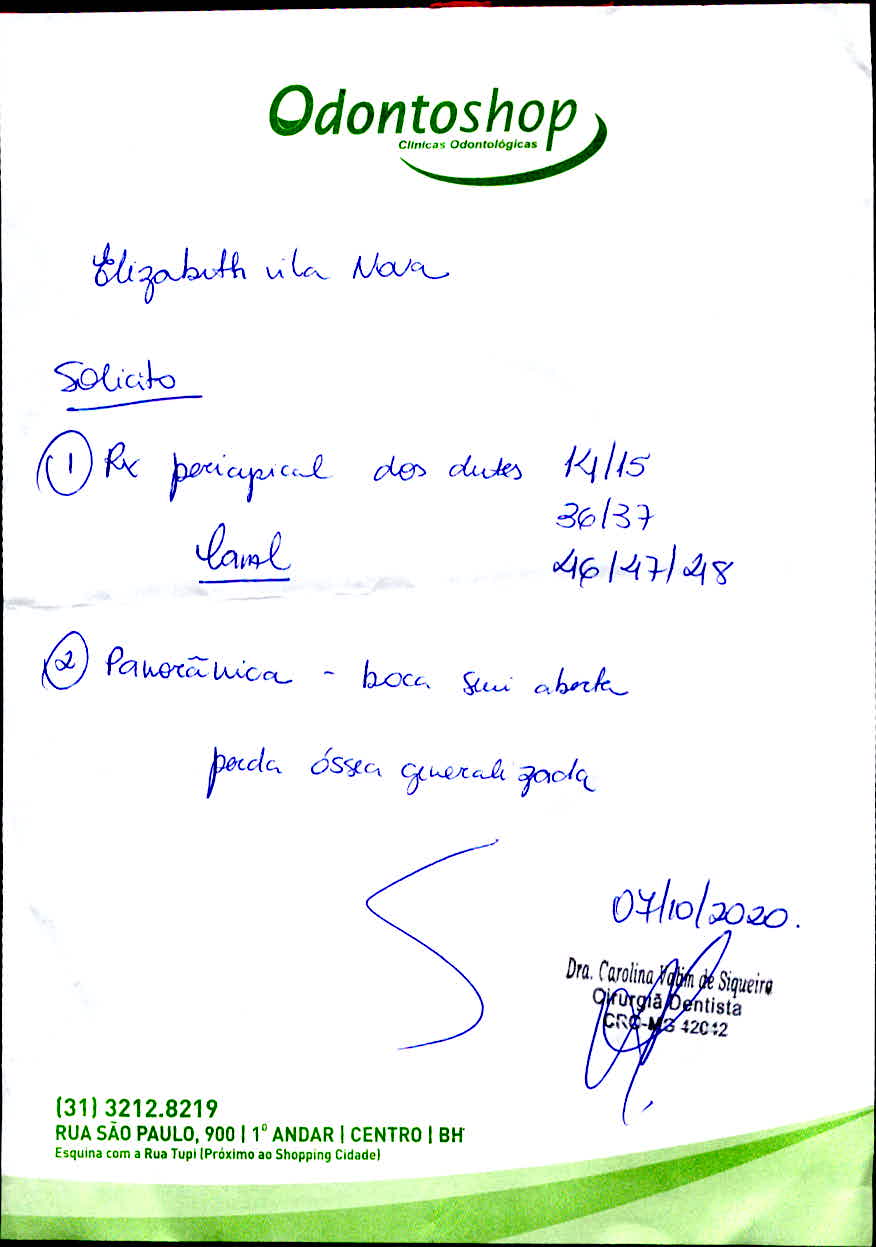 Odontoshop
Clínicas Odontológicas
Elizabeth vila Nova
Solicito
1 Rx periapical dos dentes 14/15
36/37
Canal 46/47/48
2 Panorâmica - boca semi aberta
perda óssea generalizada
07/10/2020.
Dra. Carolina de Siqueira
Cirurgiã Dentista
CRO-MG
(31) 3212.8219
RUA SÃO PAULO, 900 | 1º ANDAR | CENTRO | BH
Esquina com a Rua Tupi (Próximo ao Shopping Cidade)